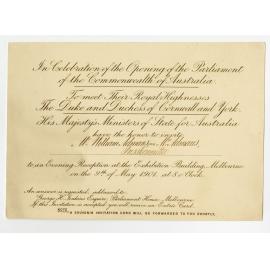 In Celebration of the Opening of the Parliament
of the Commonwealth of Australia
To meet Their Royal Highnesses
The Duke and Duchess of Cornwall and York
His Majesty's Ministers of State for Australia
have the honor to invite
Mr William
to an Evening Reception at the Exhibition Building, Melbourne
on the 9th of May 1901, at 8 o'Clock.
An answer is requested, addressed to
George H. Jenkins Esquire, Parliament House, Melbourne
If this Invitation is accepted you will receive an Entrée Card.
A SOUVENIR INVITATION CARD WILL BE FORWARDED TO YOU SHORTLY.